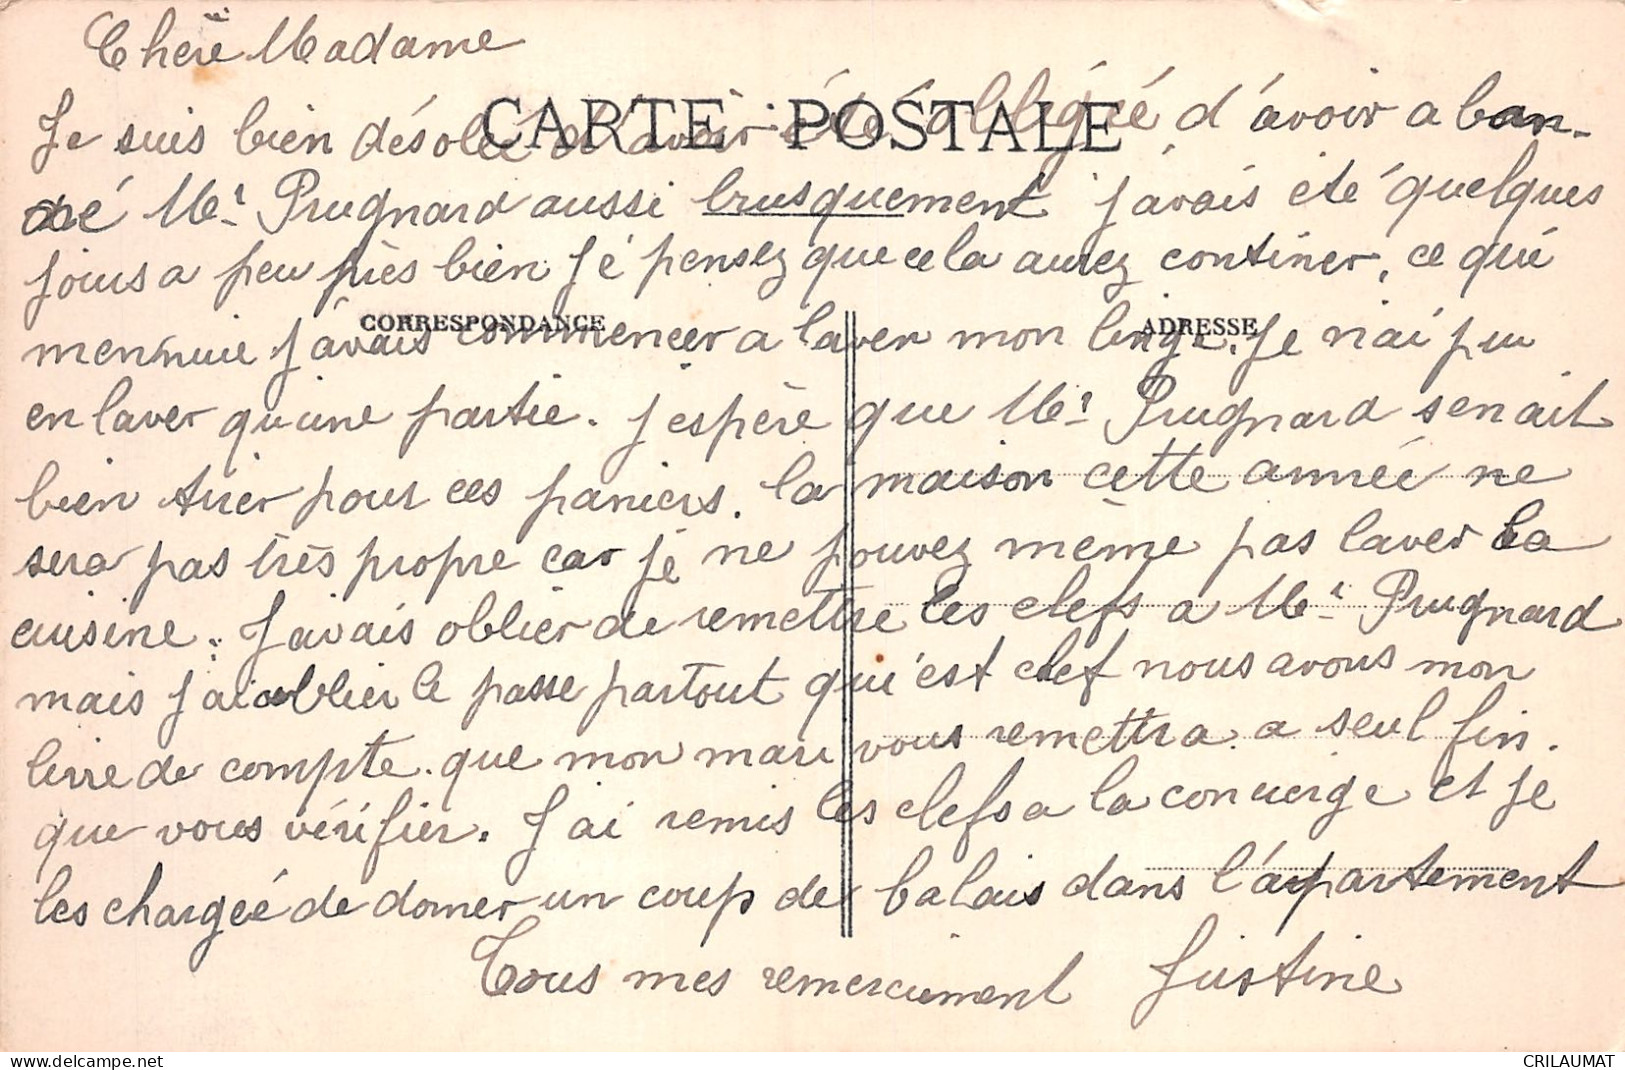 Chère Madame
CARTE POSTALE
Je suis bien désolée d'avoir été obligée d'avoir aban-
né Mr Prugnard aussi brusquement j'avais été quelques
jours a peu près bien Jé pensez que cela aurez continer, ce qui
mennuie j'avais commencer a laver mon linge. Je n'ai pu
CORRESPONDANCE
ADRESSE
en laver qu'une partie. J'espère que Mr Prugnard senait
bien tirer pour ces paniers. la maison cette année ne
sera pas très propre car je ne pouvez même pas laver la
cuisine. J'avais oblier de remettre les clefs a Mr Prugnard
mais j'ai oublier le passe partout qu'est clef nous avons mon
livre de compte que mon mari vous remettra a seul fin.
que vous vérifier. J'ai remis les clefs a la concierge et je
les chargée de donner un coup de balais dans l'appartement
Tous mes remerciement Justine
www.delcampe.net
CRILAUMAT